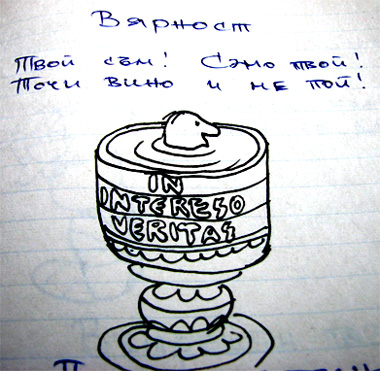 Вярност
Твой съм! Само твой!
Точи вино и не пой!
IN
INTERESO
VERITAS